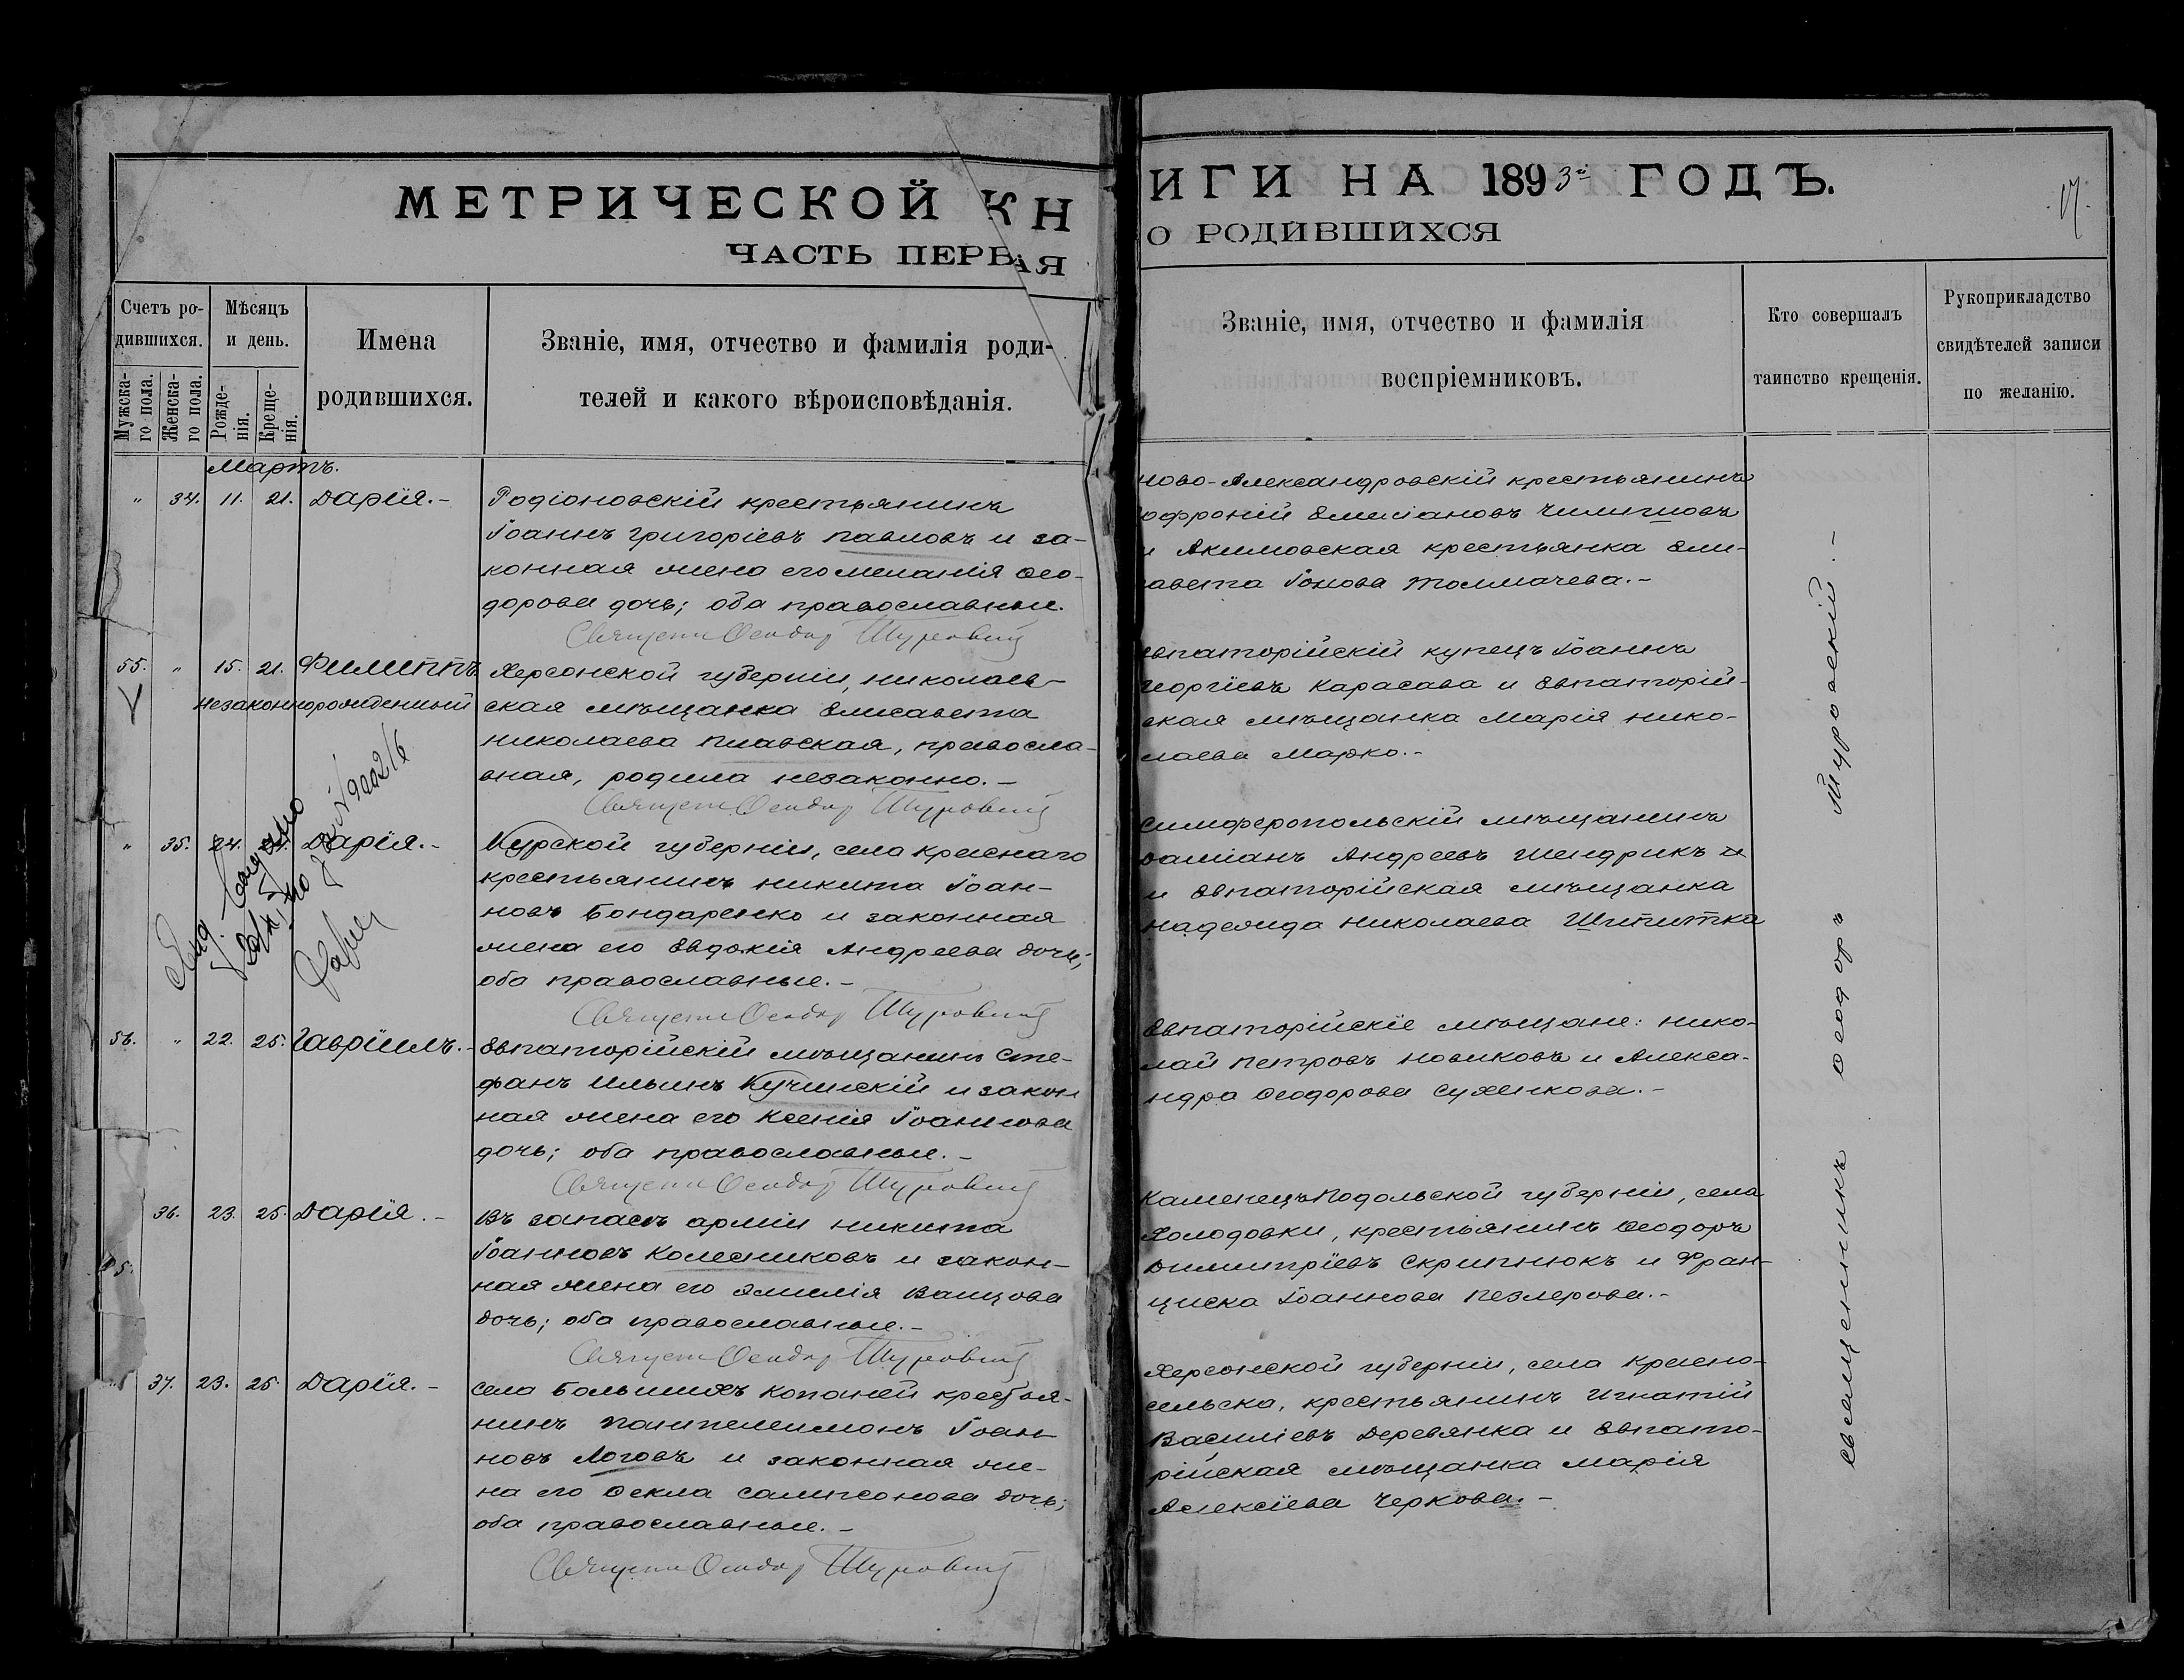 МЕТРИЧЕСКОЙ КНИГИ НА 1893й ГОДЪ.
ЧАСТЬ ПЕРВАЯ О РОДИВШИХСЯ
17.
Счетъ ро-
дившихся.
Мужска-
го пола.
Женска-
го пола.
Мѣсяцъ
и день.
Рожде-
нія.
Креще-
нія.
Имена
родившихся.
Званіе, имя, отчество и фамилія роди-
телей и какого вѣроисповѣданія.
Званіе, имя, отчество и фамилія
воспріемниковъ.
Кто совершалъ
таинство крещенія.
Рукоприкладство
свидѣтелей записи
по желанію.
Мартъ.
" 34. 11. 21. Дарія.-
Родіоновскій крестьянинъ
Іоаннъ Григоріевъ Павловъ и за-
конная жена его Меланія Ѳео-
дорова дочь; оба православные.
Священ Ѳеодор Щуровский
ново-Александровскій крестьянинъ
офроній Емеліановъ
и Акимовская крестьянка Ели-
завета Іонова Толмачева.-
55. " 15. 21. Филиппъ
незаконнорожденный
Херсонской губерніи, николаев-
ская мѣщанка Елисавета
Николаева Плавская, правосла-
вная, родила незаконно.-
Священ Ѳеодор Щуровский
Евпаторійскій купецъ Іоаннъ
Георгіевъ Карасава и Евпаторій-
ская мѣщанка Марія Нико-
лаева Марко.-
" 35. 24. Дарія.-
Курской губерніи, села Краснаго
крестьянинъ Никита Іоан-
новъ Бондаренко и законная
жена его Евдокія Андреева дочь;
оба православные.-
Священ Ѳеодор Щуровский
Симферопольскій мѣщанинъ
Даміанъ Андреевъ Шендрикъ и
и Евпаторійская мѣщанка
Надежда Николаева Шпитка
56. " 22. 25. Гавріилъ.-
Евпаторійскій мѣщанинъ Сте-
фанъ Ильинъ Кучинскій и закон
ная жена его Ксенія Іоаннова
дочь; оба православные.-
Священ Ѳеодор Щуровский
Евпаторійскіе мѣщане: Нико-
лай Петровъ Новиковъ и Алекса-
ндра Ѳеодорова Суженкова.-
36. 23. 25. Дарія.-
Въ запасѣ арміи Никита
Іоанновъ Колесниковъ и закон-
ная жена его Эмилія Ванцова
дочь; оба православные.-
Священ Ѳеодор Щуровский
Каменецъ-Подольской губерніи, села
Холодовки, крестьянинъ Ѳеодоръ
Димитріевъ Скрипнюкъ и Фран-
циска Іоаннова Пезлерова.-
37. 23. 25. Дарія.-
села Большихъ Копаней крестья-
нинъ Пантелеимонъ Іоан-
новъ Логовъ и законная же-
на его Ѳекла Сампсонова дочь;
оба православные.-
Священ Ѳеодор Щуровский
Херсонской губерніи, села Красно-
сельска, крестьянинъ Игнатій
Василіевъ Деревянка и Евпато-
рійская мѣщанка Марія
Алексіева Черкова.-
священникъ Ѳеодоръ Щуровскій.-